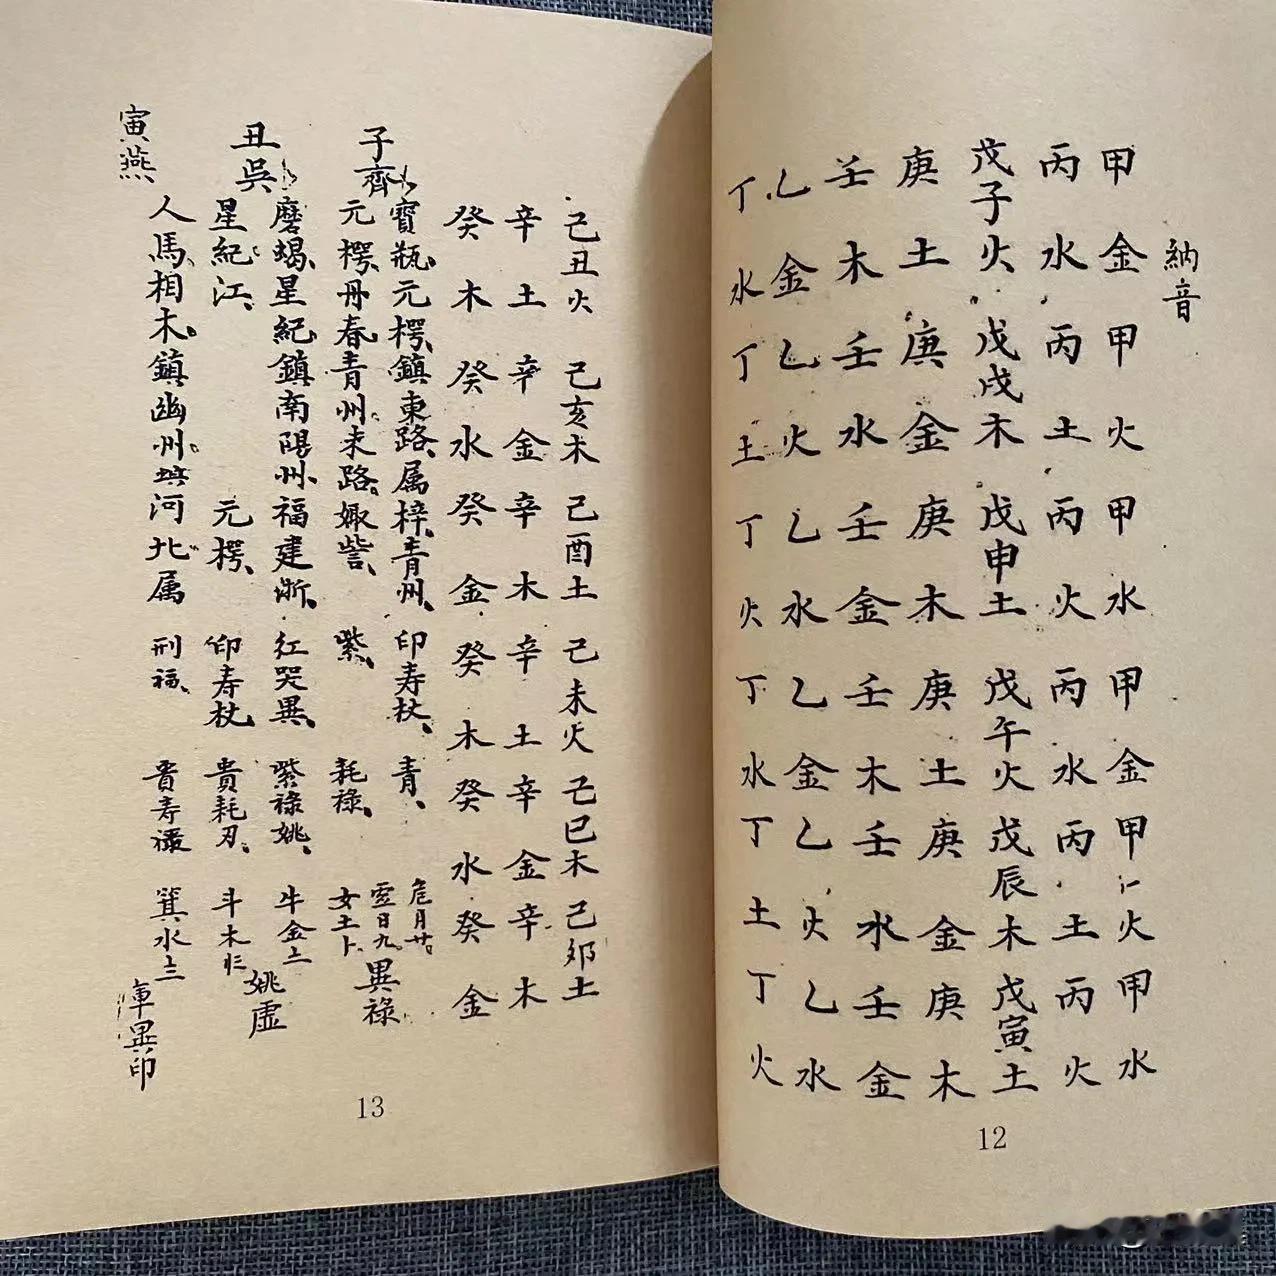 納音
甲金甲火甲水甲金甲火甲水
丙水丙土丙火丙水丙土丙火
戊子火戊戌木戊申土戊午火戊辰木戊寅土
庚土庚金庚木庚土庚金庚木
壬木壬水壬金壬木壬水壬金
乙金乙火乙水乙金乙火乙水
丁水丁土丁火丁水丁土丁火
12
己丑火己亥木己酉土己未火己巳木己卯土
辛土辛金辛木辛土辛金辛木
癸木癸水癸金癸木癸水癸金
子齊
寶瓶元枵鎮東路属梓青州印寿杖青危月廿
元枵丹春青州耒路娵訾紫耗祿
虛日九
女土卜
異祿
丑吳
磨蝎星紀鎮南陽州福建浙紅哭異紫祿姚牛金二
星紀江元枵印寿杖貴耗刃斗木
姚虛
寅燕
人馬相木鎮幽州 河北属刑福貴寿祿箕水三
庫異印
13